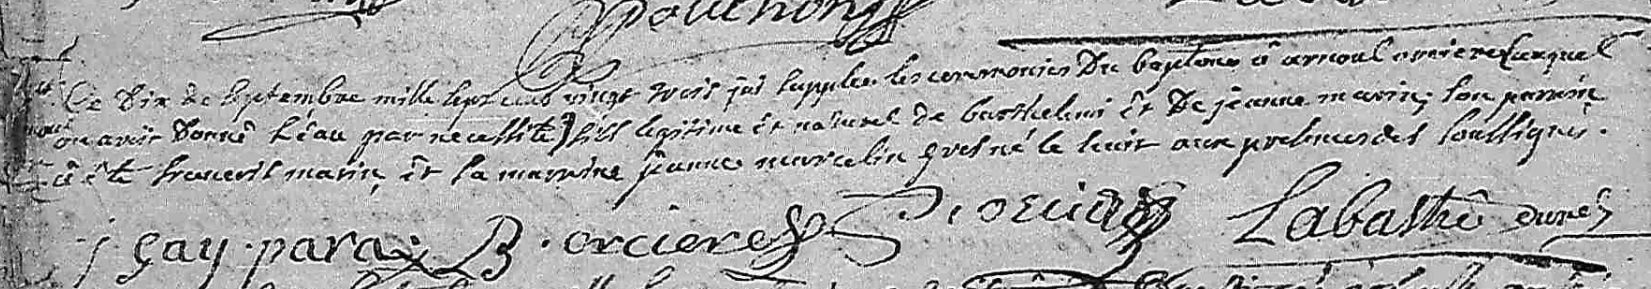 Pouchon
Ce dix de septembre mille sept cens vingt trois j'ai supplée les ceremonies Du baptème à arnoul orciere auquel
on avoit donné l'eau par necessité fils legitime et naturel de barthelemi et De jeanne marin; son parrain
a été francois marin et la marraine jeanne marcelin né le huit aux presences des soussignés.
j gay paran B. orciere Labastie curé